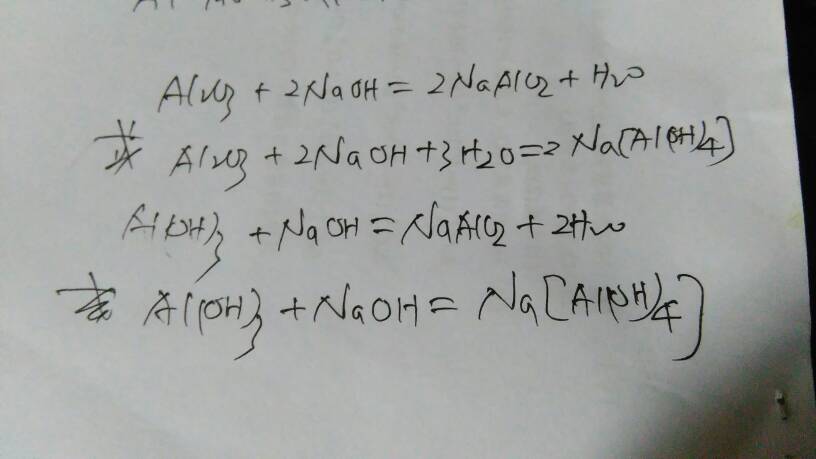 Al2O3 + 2NaOH = 2NaAlO2 + H2O
Al2O3 + 2NaOH + 3H2O = 2Na[Al(OH)4]
Al(OH)3 + NaOH = NaAlO2 + 2H2O
Al(OH)3 + NaOH = Na[Al(OH)4]